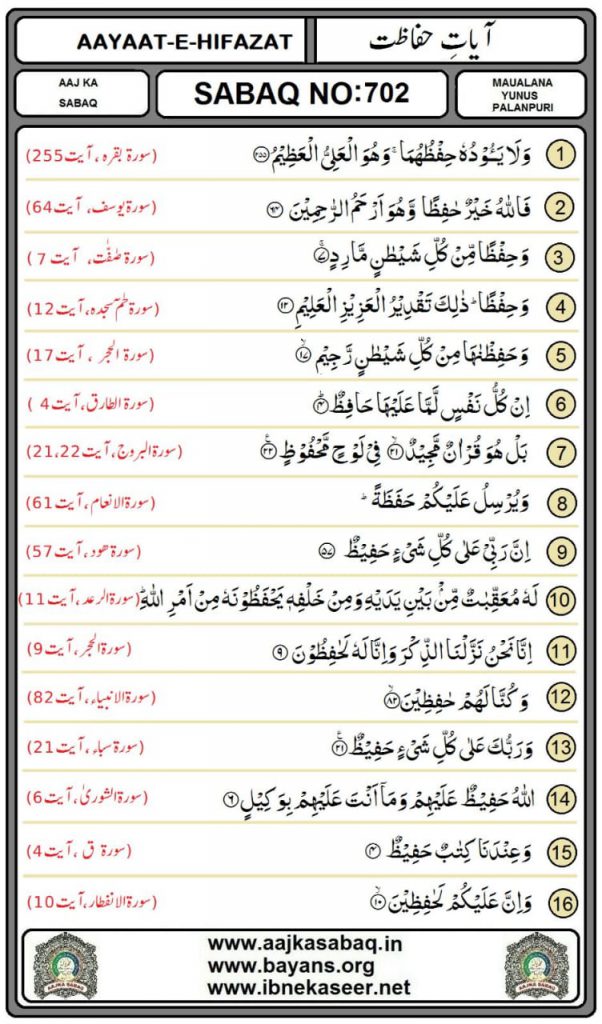 AAYAAT-E-HIFAZAT آیاتِ حفاظت
AAJ KA SABAQ SABAQ NO:702 MAUALANA YUNUS PALANPURI
1 وَلَا يَـُٔوْدُهٗ حِفْظُهُمَا ۚ وَهُوَ الْعَلِىُّ الْعَظِيْمُ ۝۲۵۵ (سورۃ بقرہ، آیت 255)
2 فَاللّٰهُ خَيْرٌ حٰفِظًا وَّهُوَ اَرْحَمُ الرّٰحِمِيْنَ ۝۶۴ (سورۃ یوسف، آیت 64)
3 وَحِفْظًا مِّنْ كُلِّ شَيْطٰنٍ مَّارِدٍ ۝۷ (سورۃ صٰفّٰت، آیت 7)
4 وَحِفْظًا ؕ ذٰلِكَ تَقْدِيْرُ الْعَزِيْزِ الْعَلِيْمِ ۝۱۲ (سورۃ حٰمٓ سجدہ، آیت 12)
5 وَحَفِظْنٰهَا مِنْ كُلِّ شَيْطٰنٍ رَّجِيْمٍ ۝۱۷ (سورۃ الحجر، آیت 17)
6 اِنْ كُلُّ نَفْسٍ لَّمَّا عَلَيْهَا حَافِظٌ ۝۴ (سورۃ الطارق، آیت 4)
7 بَلْ هُوَ قُرْاٰنٌ مَّجِيْدٌ ۝۲۱ فِىْ لَوْحٍ مَّحْفُوْظٍ ۝۲۲ (سورۃ البروج، آیت 21،22)
8 وَيُرْسِلُ عَلَيْكُمْ حَفَظَةً ؕ (سورۃ الانعام، آیت 61)
9 اِنَّ رَبِّىْ عَلٰى كُلِّ شَىْءٍ حَفِيْظٌ ۝۵۷ (سورۃ ھود، آیت 57)
10 لَهٗ مُعَقِّبٰتٌ مِّنْۢ بَيْنِ يَدَيْهِ وَمِنْ خَلْفِهٖ يَحْفَظُوْنَهٗ مِنْ اَمْرِ اللّٰهِ ؕ (سورۃ الرعد، آیت 11)
11 اِنَّا نَحْنُ نَزَّلْنَا الذِّكْرَ وَاِنَّا لَهٗ لَحٰفِظُوْنَ ۝۹ (سورۃ الحجر، آیت 9)
12 وَكُنَّا لَهُمْ حٰفِظِيْنَ ۝۸۲ (سورۃ الانبیاء، آیت 82)
13 وَرَبُّكَ عَلٰى كُلِّ شَىْءٍ حَفِيْظٌ ۝۲۱ (سورۃ سباء، آیت 21)
14 اللّٰهُ حَفِيْظٌ عَلَيْهِمْ وَمَاۤ اَنْتَ عَلَيْهِمْ بِوَكِيْلٍ ۝۶ (سورۃ الشوریٰ، آیت 6)
15 وَعِنْدَنَا كِتٰبٌ حَفِيْظٌ ۝۴ (سورۃ ق، آیت 4)
16 وَاِنَّ عَلَيْكُمْ لَحٰفِظِيْنَ ۝۱۰ (سورۃ الانفطار، آیت 10)
www.aajkasabaq.in
www.bayans.org
www.ibnekaseer.net
AAJKA SABAQ AAJKA SABAQ